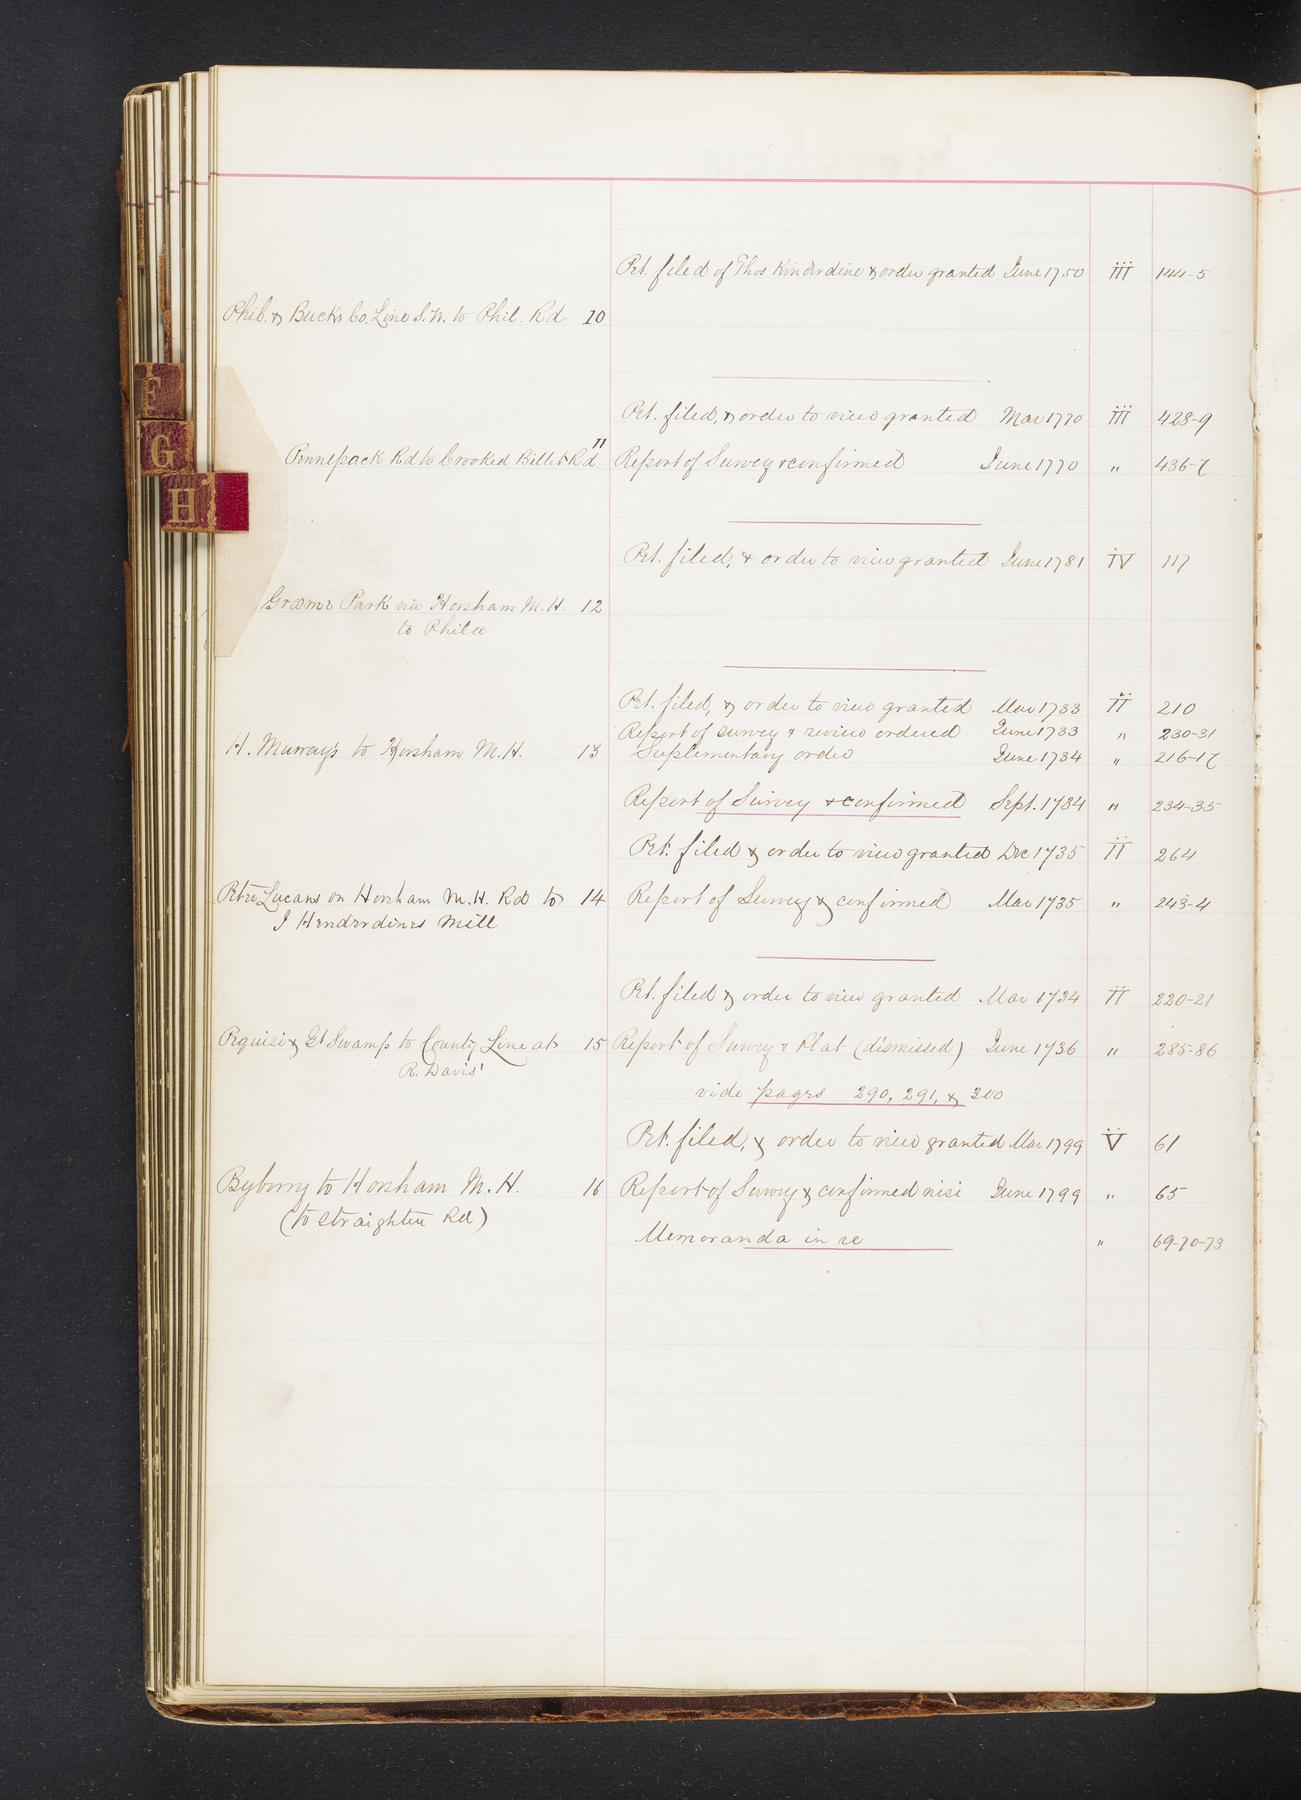 Pet. filed of Thos Kinderdine & order granted June 1750 III 144-5
Phil. & Bucks Co. Line S.W. to Phil. Rd 10
Pet. filed, & order to view granted Mar 1770 III 428-9
Pennepack Rd to Crooked Billet Rd 11 Report of Survey & confirmed June 1770 " 436-7
Pet. filed, & order to view granted June 1781 IV 117
Graeme Park via Horsham M.H. 12
to Phila
Pet. filed, & order to view granted Mar 1733 II 210
Report of survey & review ordered June 1733 " 230-31
H. Murray's to Horsham M.H. 13 Suplementary order June 1734 " 216-17
Report of Survey & confirmed Sept. 1734 " 234-35
Pet. filed & order to view granted Dec 1735 II 264
Peter Lucans on Horsham M.H. Rd to 14 Report of Survey & confirmed Mar 1735 " 243-4
J Henderdines Mill
Pet. filed & order to view granted Mar 1734 II 220-21
& Gt Swamp to County Line at 15 Report of Survey & Plat (dismissed) June 1736 " 285-86
R. Davis'
vide pages 290, 291, & 300
Pet. filed, & order to view granted Mar 1799 V 61
Byberry to Horsham M.H. 16 Report of Survey & confirmed nisi June 1799 " 65
(to straighten Rd)
Memoranda in re " 69-70-73
F
G
H